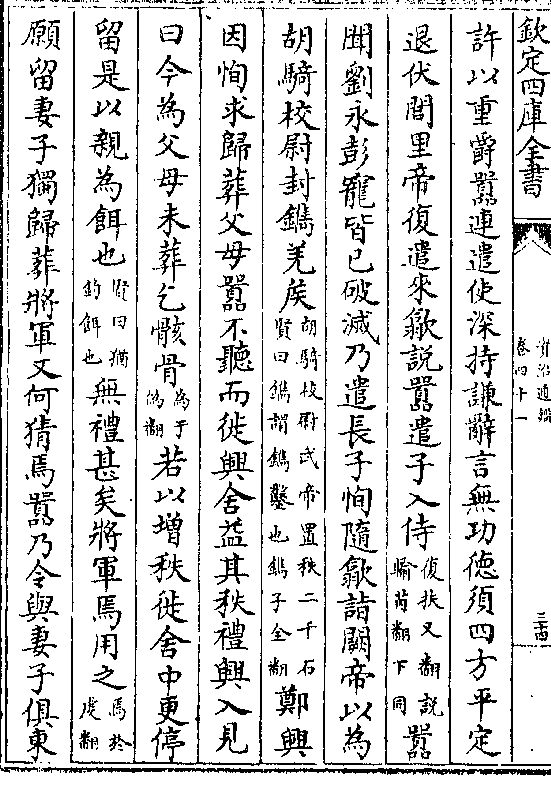 欽定四庫全書
資治通鑑
卷四十一
三十四
許以重爵囂連遣使深持謙辭言無功徳須四方平定
退伏閭里帝復遣來歙説囂遣子入侍復扶又翻説輸芮翻下同囂
聞劉永彭寵皆已破滅乃遣長子恂隨歙詣闕帝以為
胡騎校尉封鐫羌侯胡騎校尉武帝置秩二千石賢曰鐫謂鐫鑿也鐫子全翻鄭興
因恂求歸葬父母囂不聽而徙興舍益其秩禮興入見
曰今為父母未葬乞骸骨為于偽翻若以增秩徙舍中更停
留是以親為餌也賢曰猶釣餌也無禮甚矣將軍焉用之焉於䖍翻
願留妻子獨歸葬將軍又何猜焉囂乃令與妻子俱東